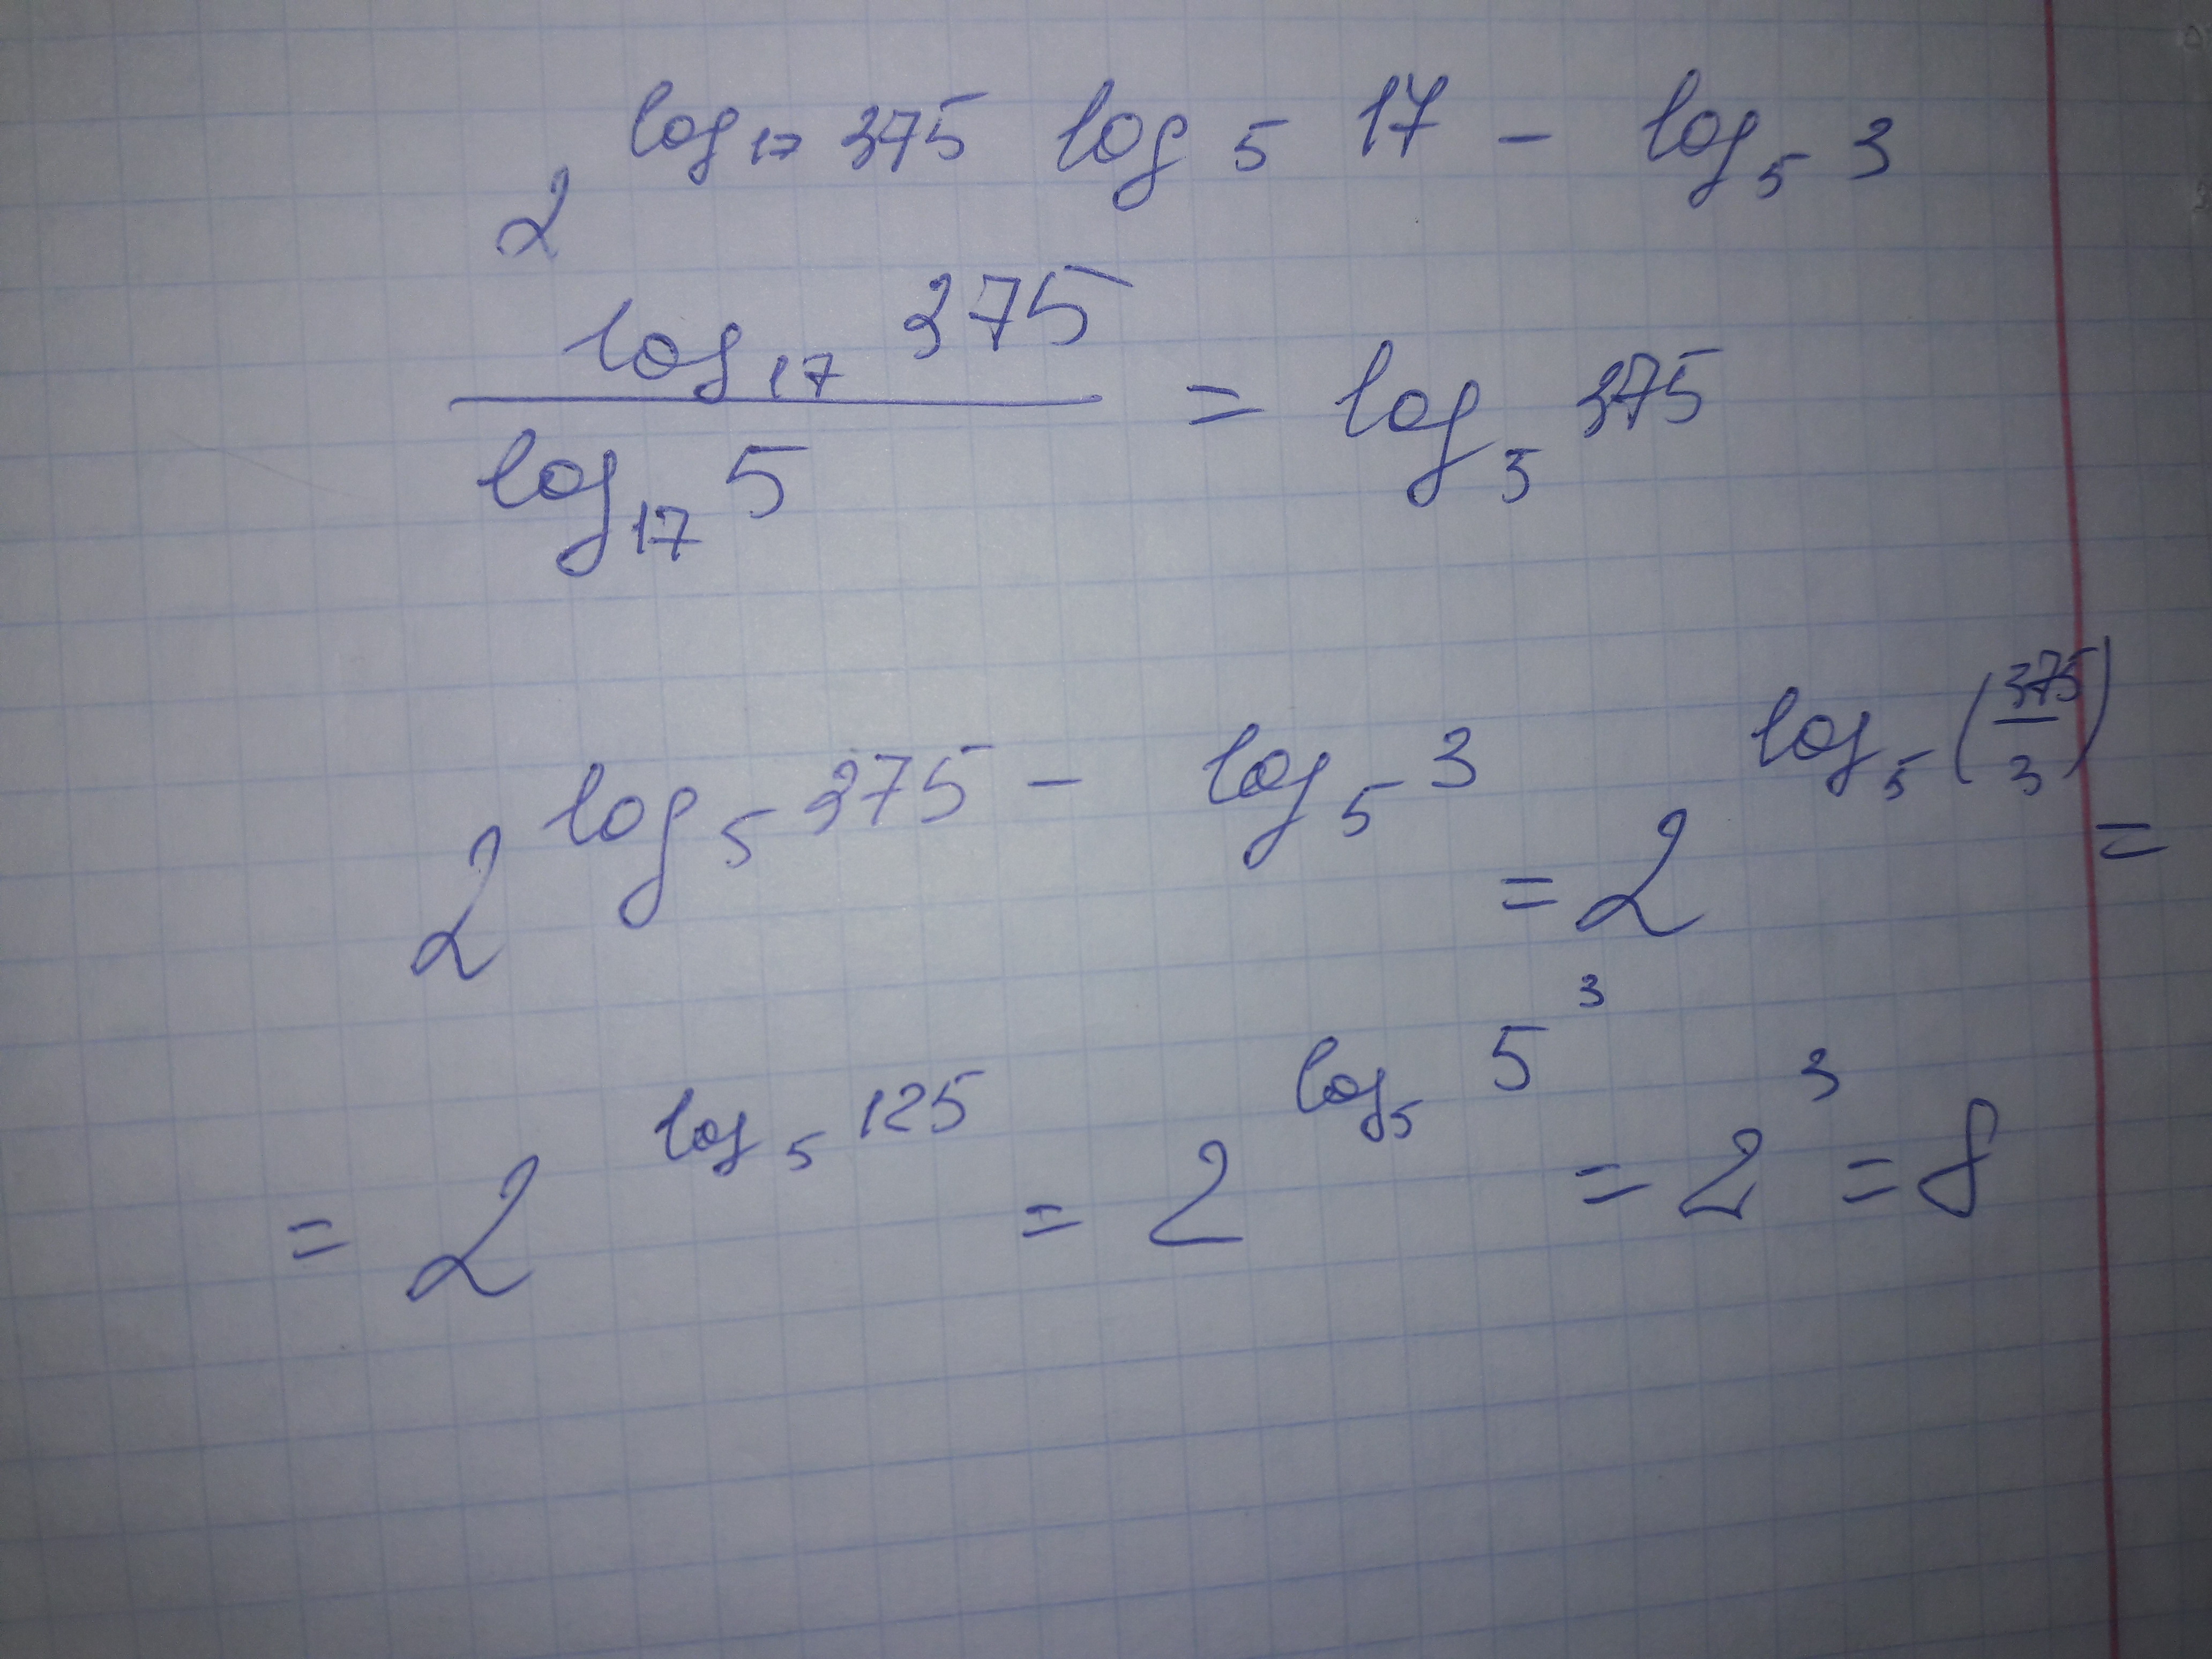 2^{log_{17} 375 log_5 17 - log_5 3}
\frac{log_{17} 375}{log_{17} 5} = log_5 375
2^{log_5 375 - log_5 3} = 2^{log_5 (\frac{375}{3})} =
= 2^{log_5 125} = 2^{log_5 5^3} = 2^3 = 8